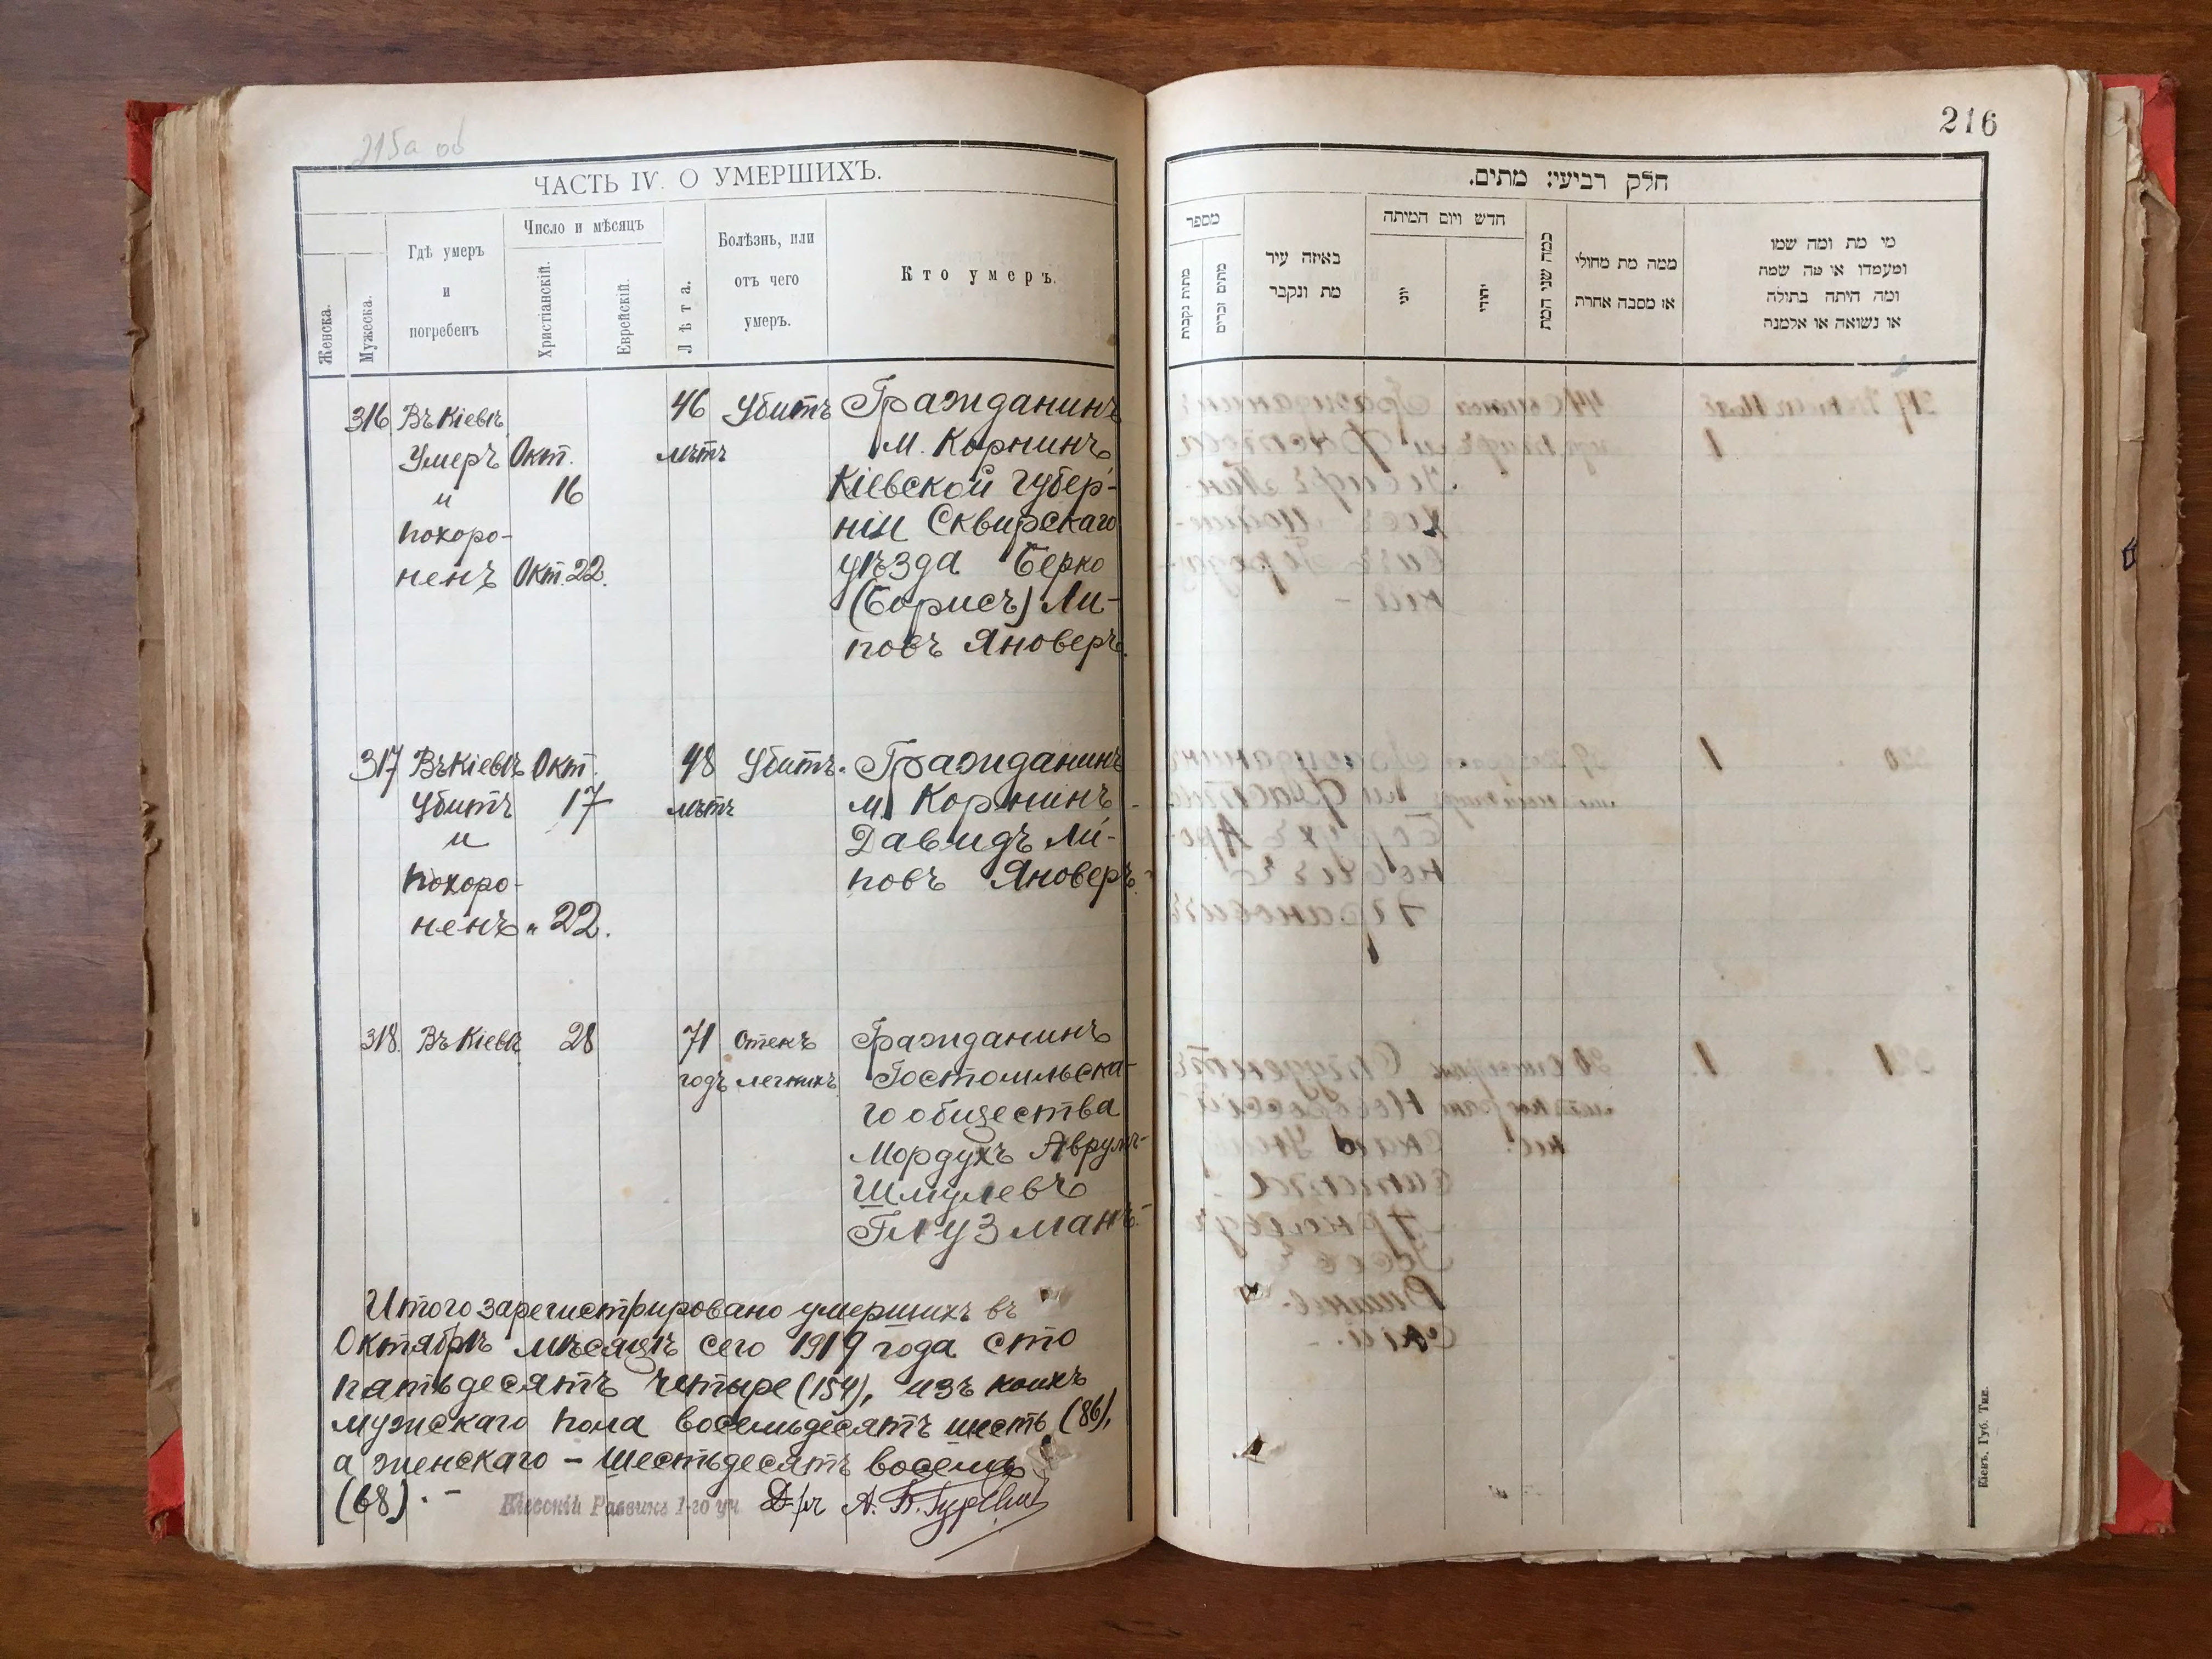 215а об
ЧАСТЬ IV. О УМЕРШИХЪ.
Женска.
Мужеска.
Гдѣ умеръ
и
погребенъ
Число и мѣсяцъ
Христіанскій.
Еврейскій.
Лѣта.
Болѣзнь, или
отъ чего
умеръ.
Кто умеръ.
316 Въ Кіевѣ 46 Убитъ Гражданинъ
умеръ Окт. лѣтъ м. Корнинъ
и 16 Кіевской губер-
похоро- ніи Сквирскаго
ненъ Окт. 22. уѣзда Берко
(Борисъ) Ли-
повъ Яноверъ.
317 Въ Кіевѣ Окт. 48 Убитъ. Гражданинъ
убитъ 17 лѣтъ м. Корнинъ
и Давидъ Ли-
похоро- повъ Яноверъ.
ненъ " 22.
318. Въ Кіевѣ 28 71 Отекъ Гражданинъ
годъ легкихъ Гостомльска-
го общества
Мордухъ Аврумъ-
Шмулевъ
Глузманъ.
Итого зарегистрировано умершихъ въ
Октябрѣ мѣсяцѣ сего 1919 года сто
пятьдесятъ четыре (154), изъ коихъ
мужскаго пола восемьдесятъ шесть (86),
а женскаго – шестьдесятъ восемь
(68). –
Кіевскій Раввинъ 1-го уч. Д-ръ А. Б. Гуревичъ
216
חלק רביעי: מתים.
מספר
מתות נקבות
מתים זכרים
באיזה עיר
מת ונקבר
חדש ויום המיתה
יוני
יהודי
כמה שני המת
ממה מת מחולי
או מסבה אחרת
מי מת ומה שמו
ומעמדו או מה שמה
ומה היתה בתולה
או נשואה או אלמנה
Кіевъ, Губ. Тип.